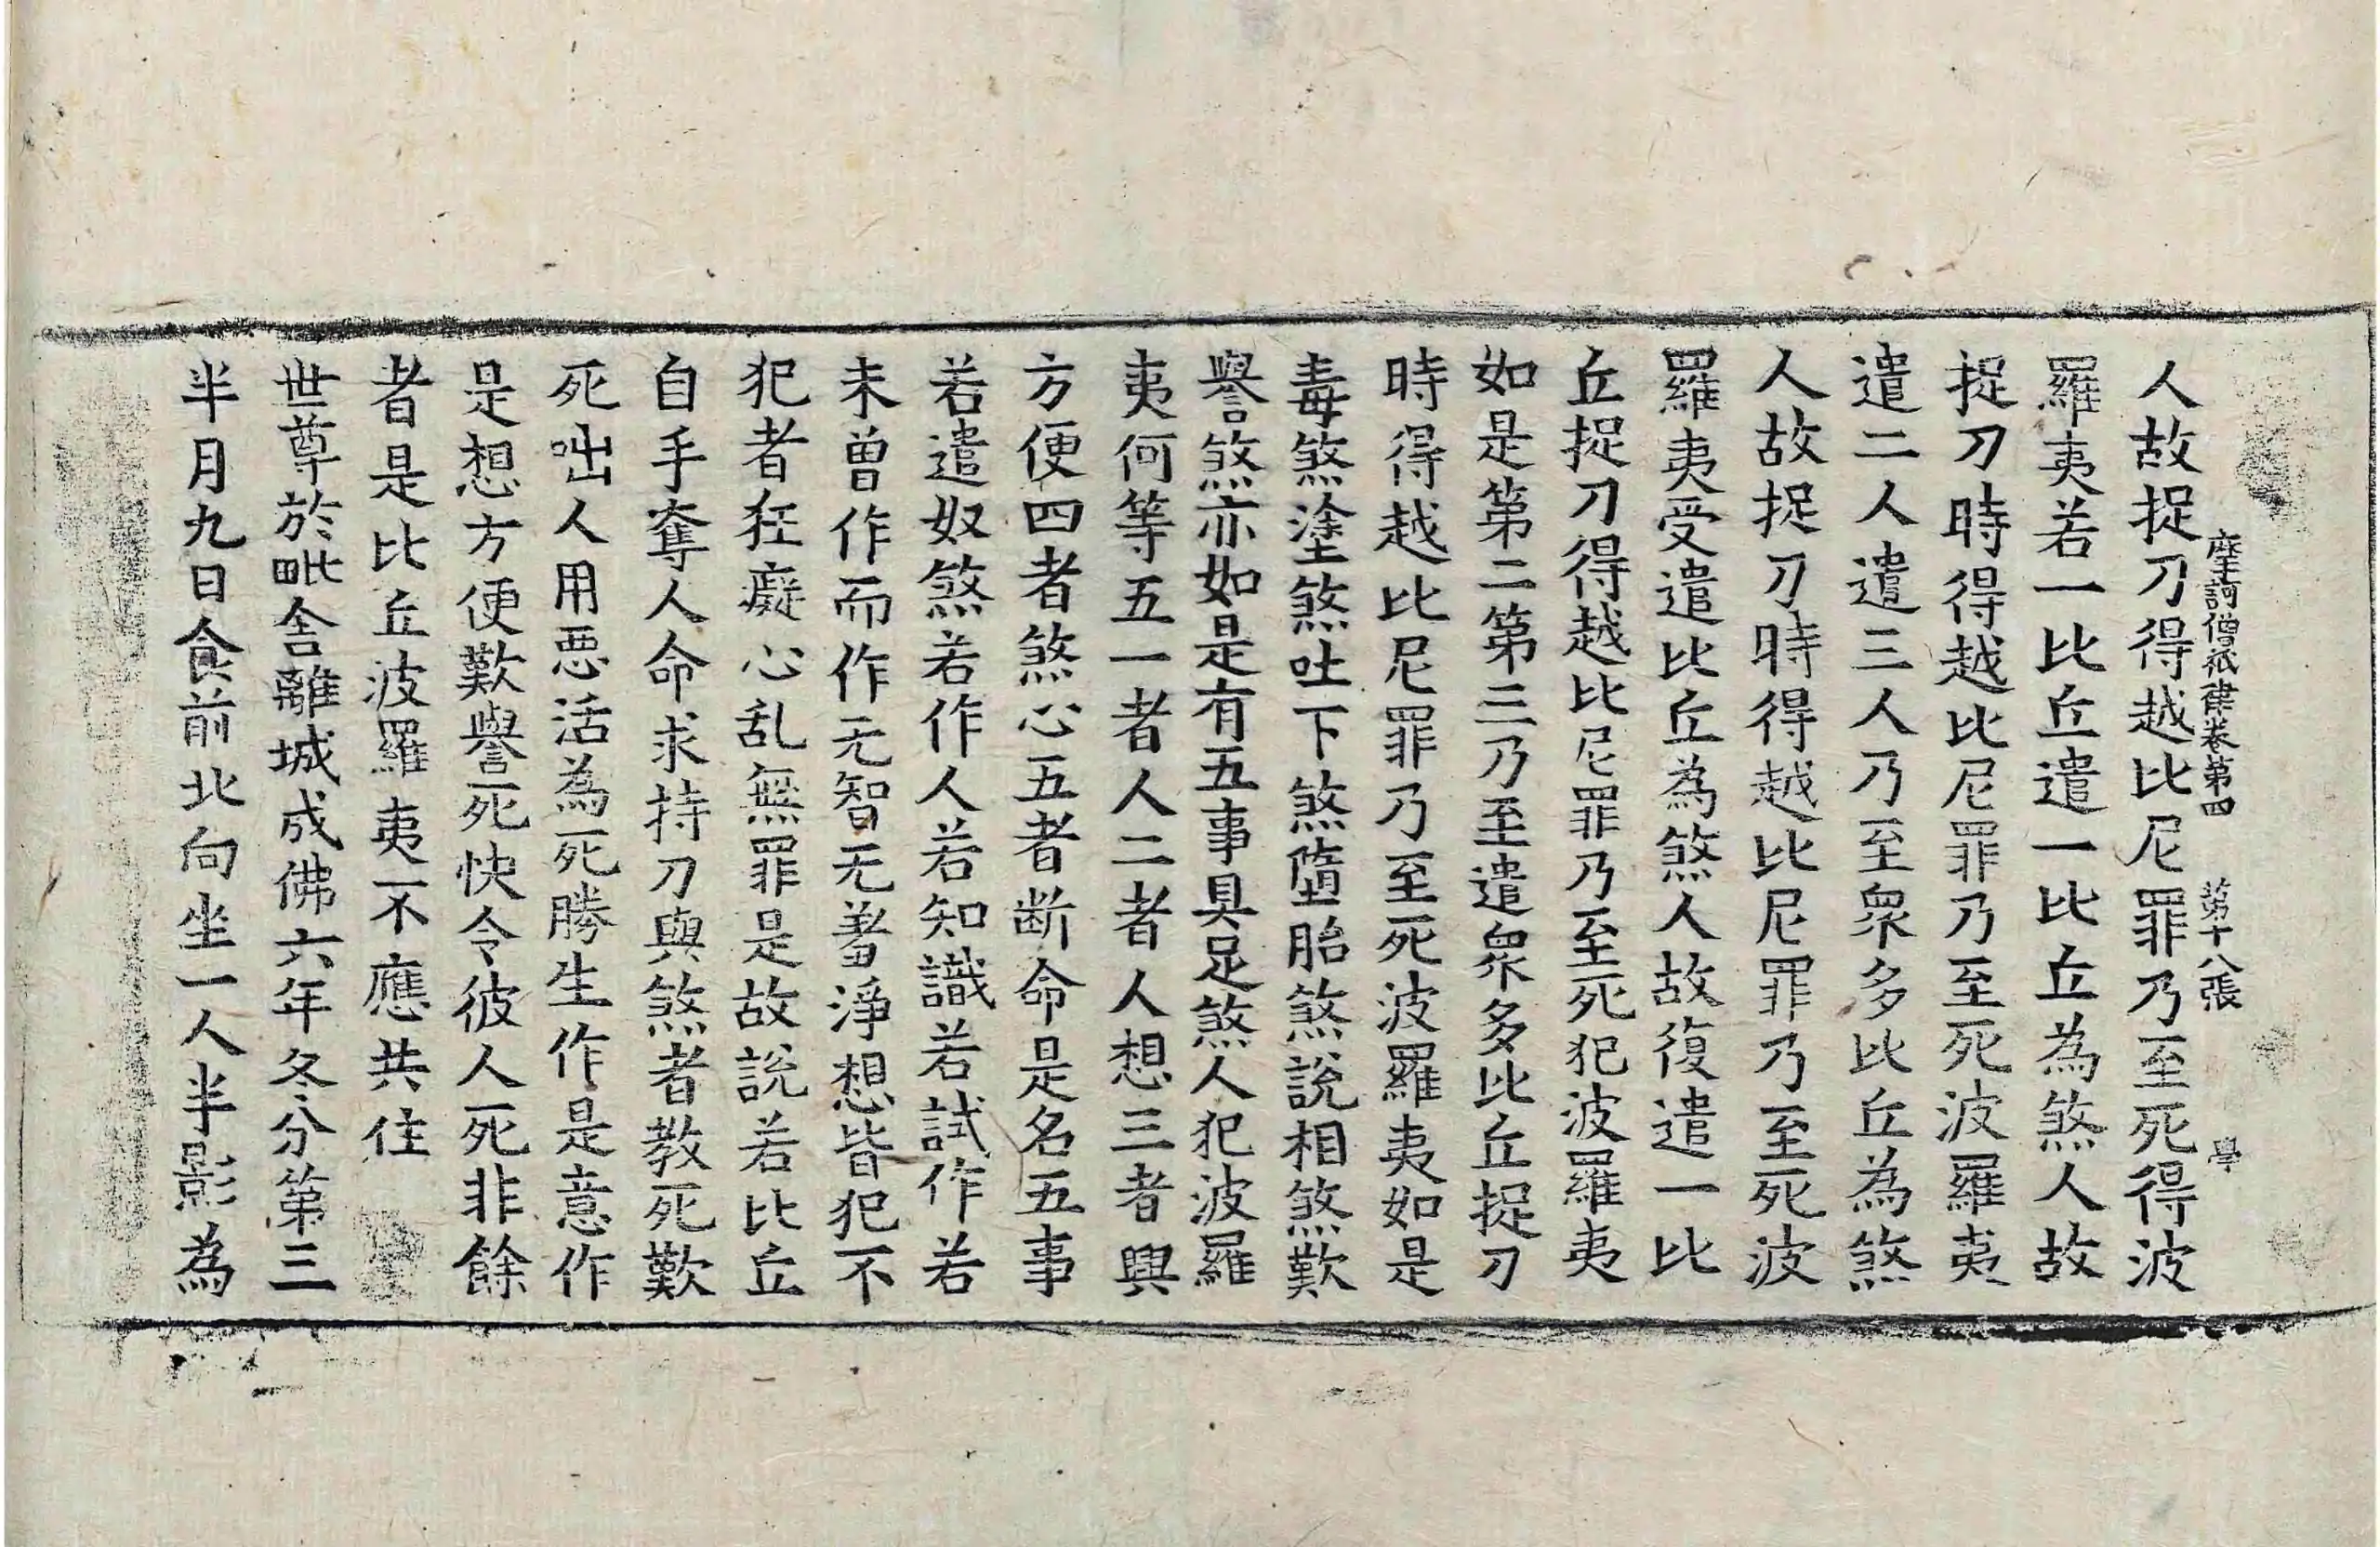 摩訶僧祇律卷第四 第十八張 學
人故捉刀得越比尼罪乃至死得波
羅夷若一比丘遣一比丘為煞人故
捉刀時得越比尼罪乃至死波羅夷
遣二人遣三人乃至眾多比丘為煞
人故捉刀時得越比尼罪乃至死波
羅夷受遣比丘為煞人故復遣一比
丘捉刀得越比尼罪乃至死犯波羅夷
如是第二第三乃至遣眾多比丘捉刀
時得越比尼罪乃至死波羅夷如是
毒煞塗煞吐下煞墮胎煞說相煞歎
譽煞亦如是有五事具足煞人犯波羅
夷何等五一者人二者人想三者興
方便四者煞心五者断命是名五事
若遣奴煞若作人若知識若試作若
未曾作而作无智无羞淨想皆犯不
犯者狂癡心乱無罪是故說若比丘
自手奪人命求持刀與煞者教死歎
死咄人用惡活為死勝生作是意作
是想方便歎譽死快令彼人死非餘
者是比丘波羅夷不應共住
世尊於毗舍離城成佛六年冬分第三
半月九日食前北向坐一人半影為